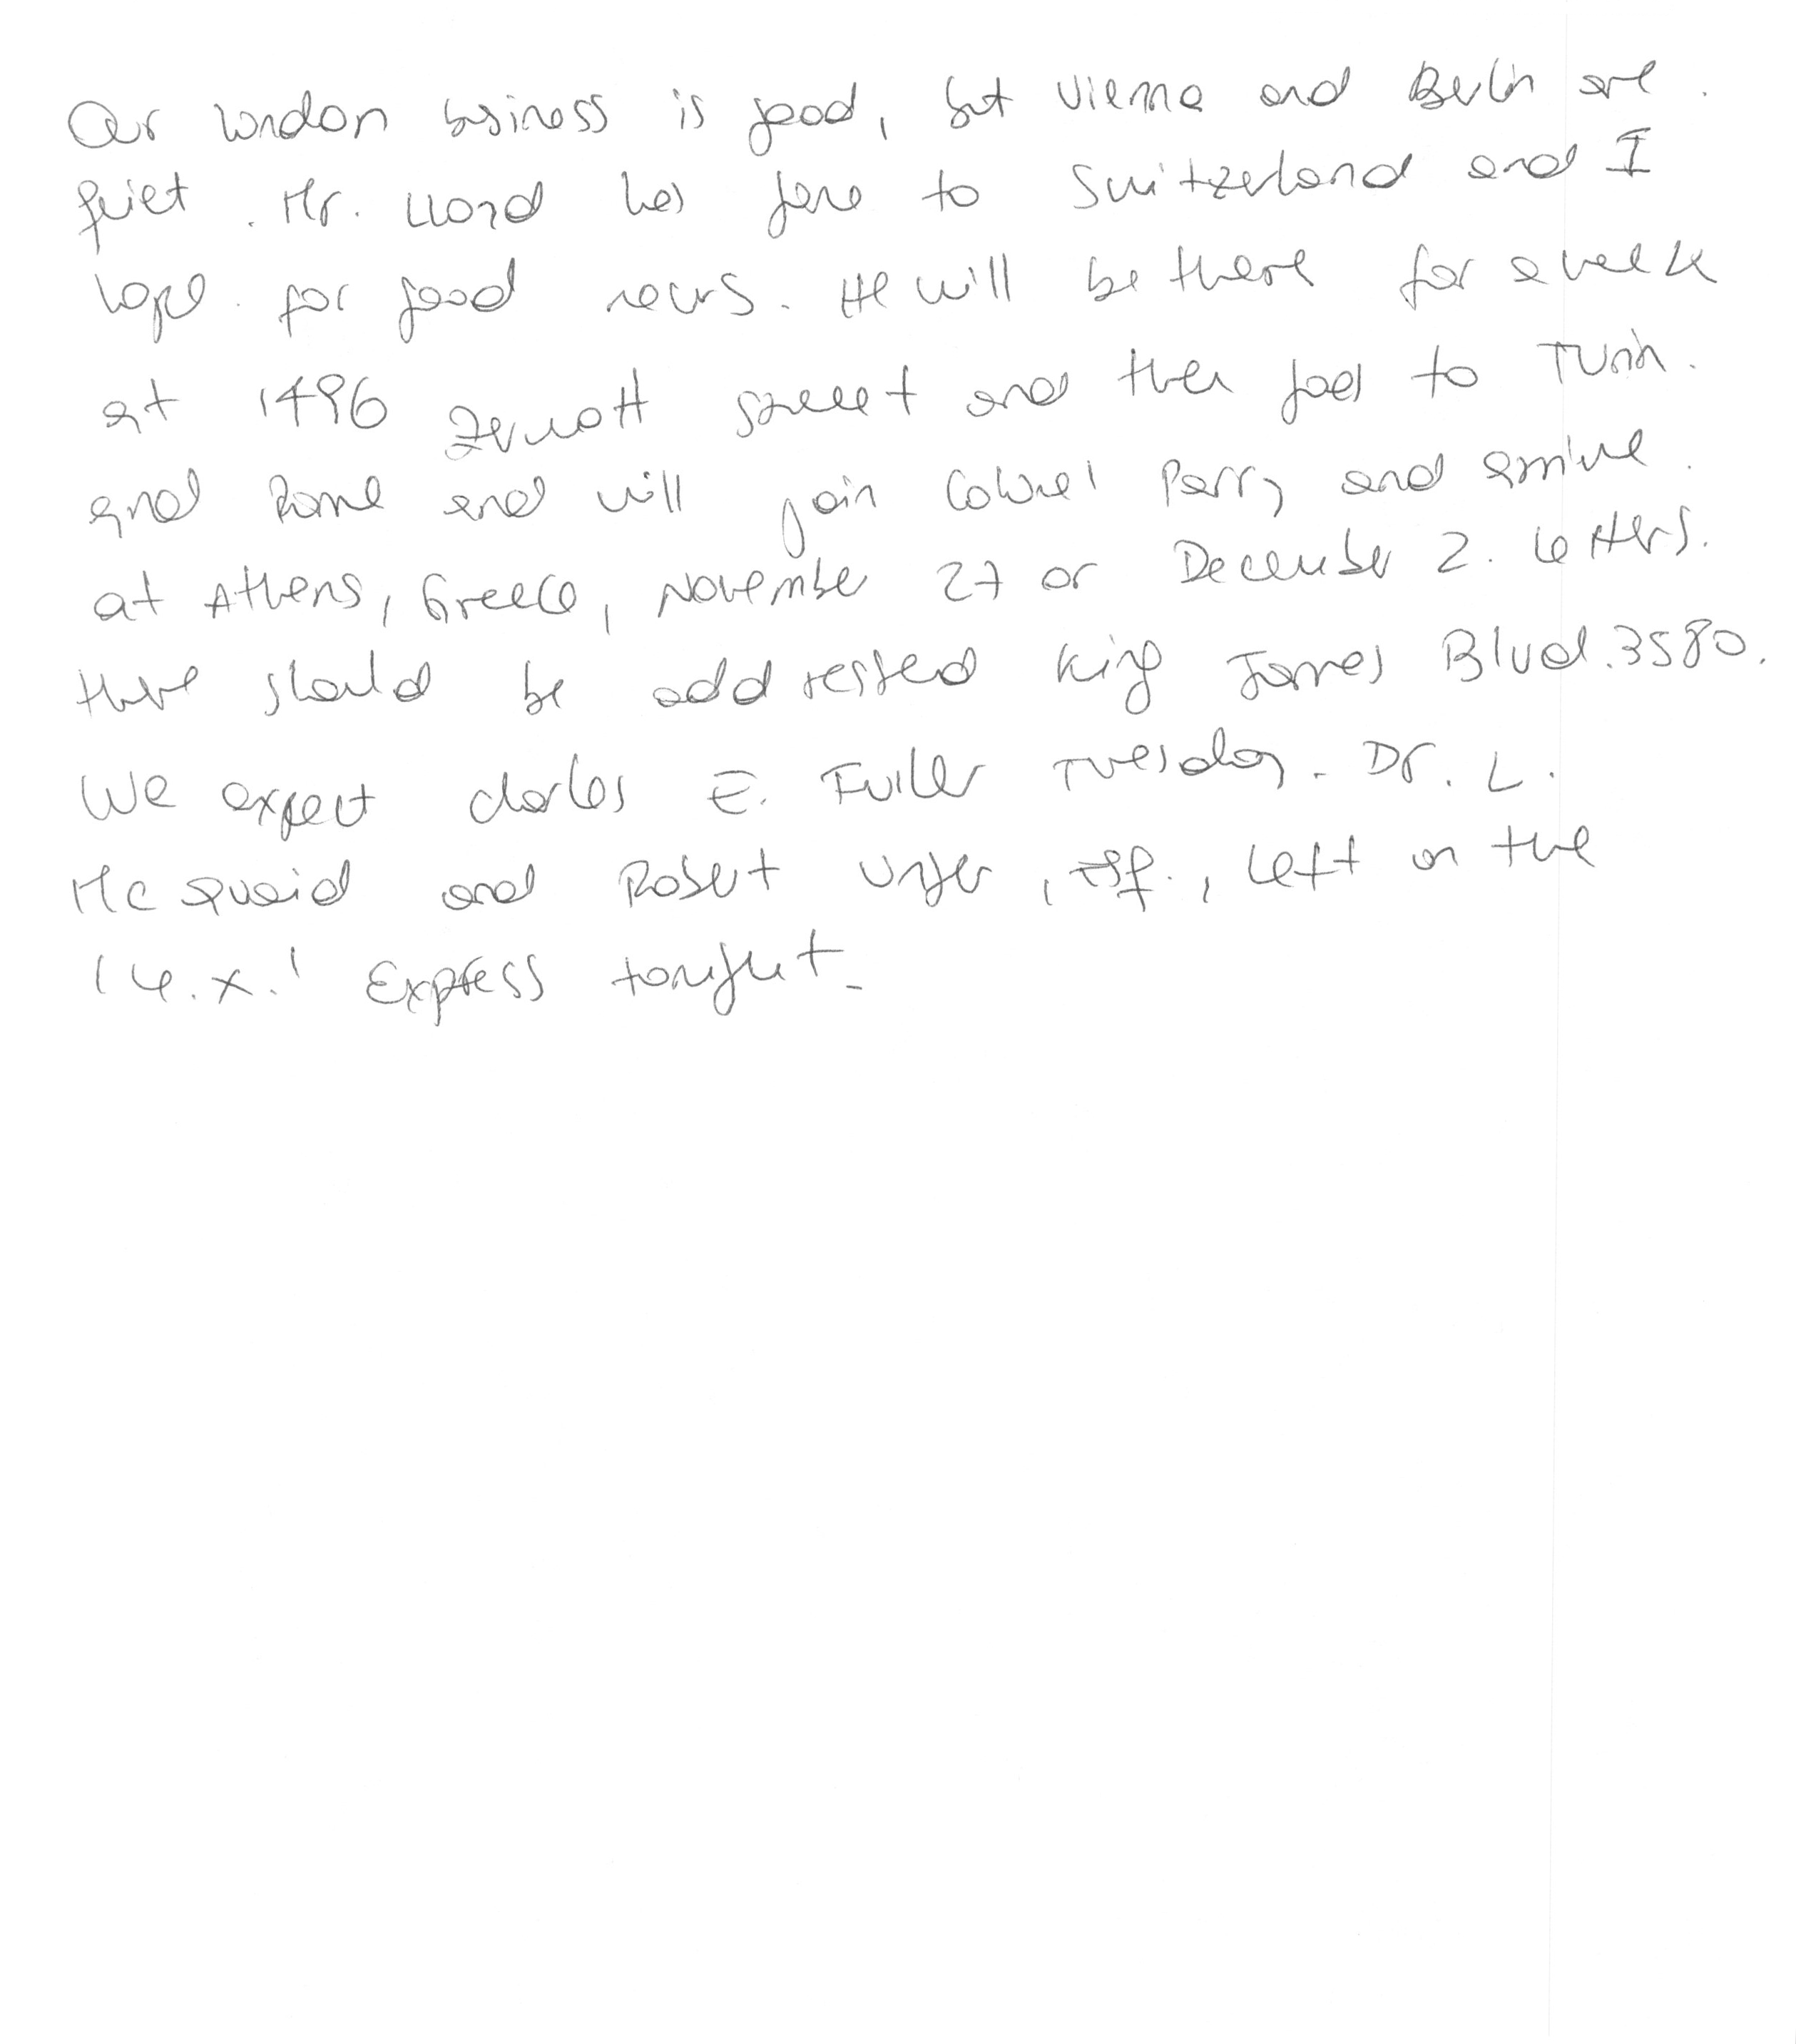 Our London business is good, but Vienna and Berlin are.
quiet. Mr. Lloyd has gone to Switzerland and I
hope for good news. He will be there for a week
at 1496 Zermott Street and then goes to Turin.
and Rome and will join Colonel Parry and arrive.
at Athens, Greece, November 27 or December 2. Letters.
there should be addressed King James Blvd. 3580.
We expect Charles E. Fuller Tuesday. Dr. L.
Mc Quaid and Robert Unger, Esq., left on the
'Y.X.' Express tonight.